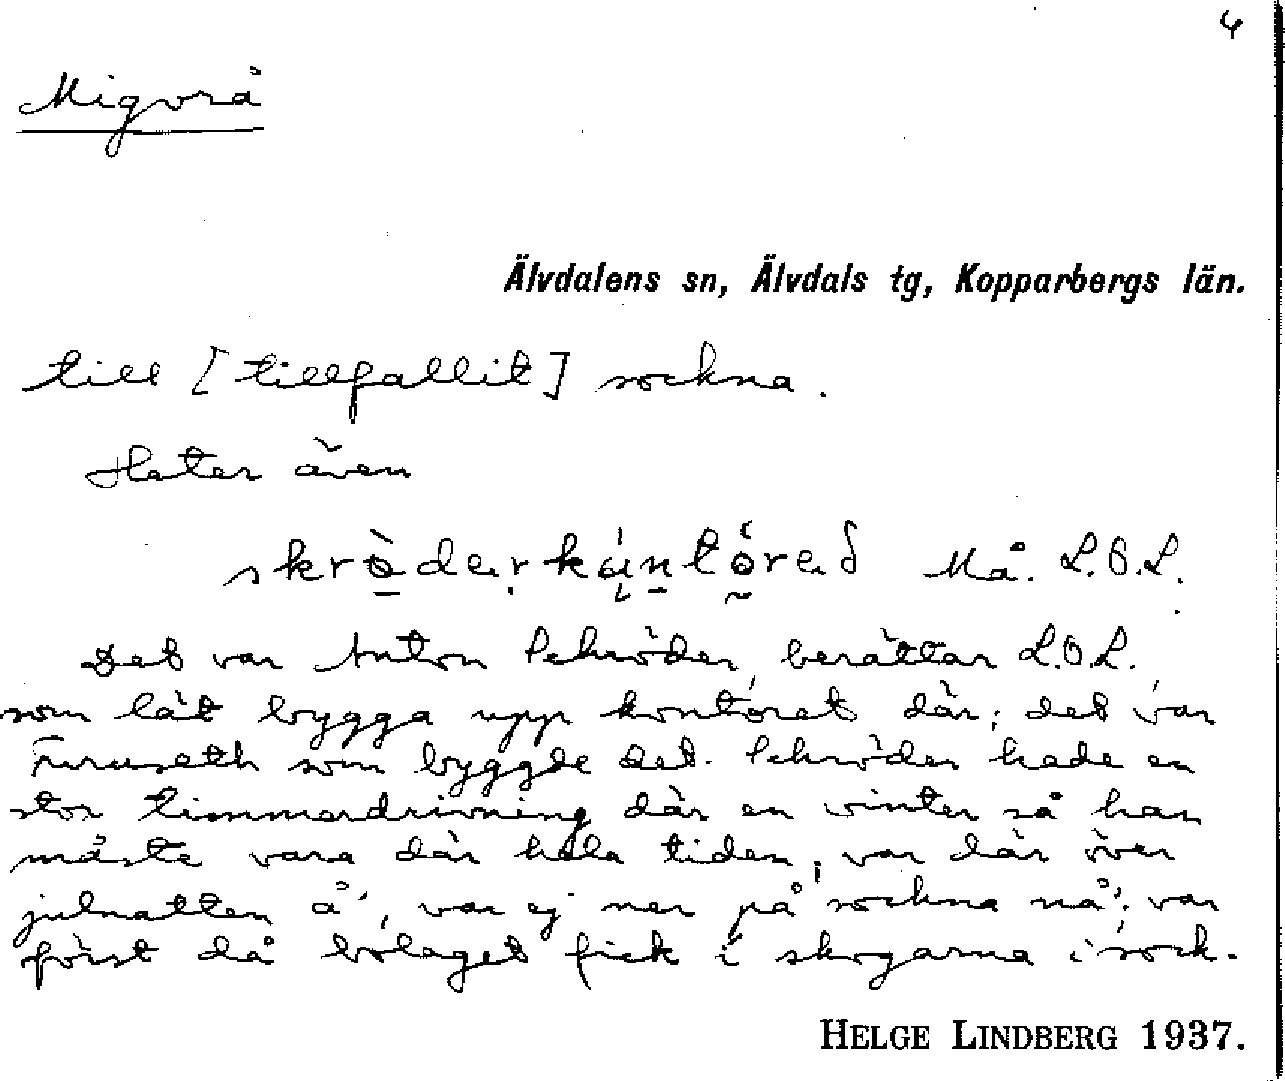 4
Migvrå
Älvdalens sn, Älvdals tg, Kopparbergs län.
till [tillfallit] sockna.
Heter även
Må. L.O.L.
Det var Anton Schröder, berättar L.O.L.
som lät bygga upp kontoret där; det var
Furuseth som byggde det. Schröder hade en
stor timmerdrivning där en vinter så han
måste vara där hela tiden, "var där över
julnatten å", var ej mer på "sockna nå"; var
först då bolaget fick i skogarna i sock-
HELGE LINDBERG 1937.